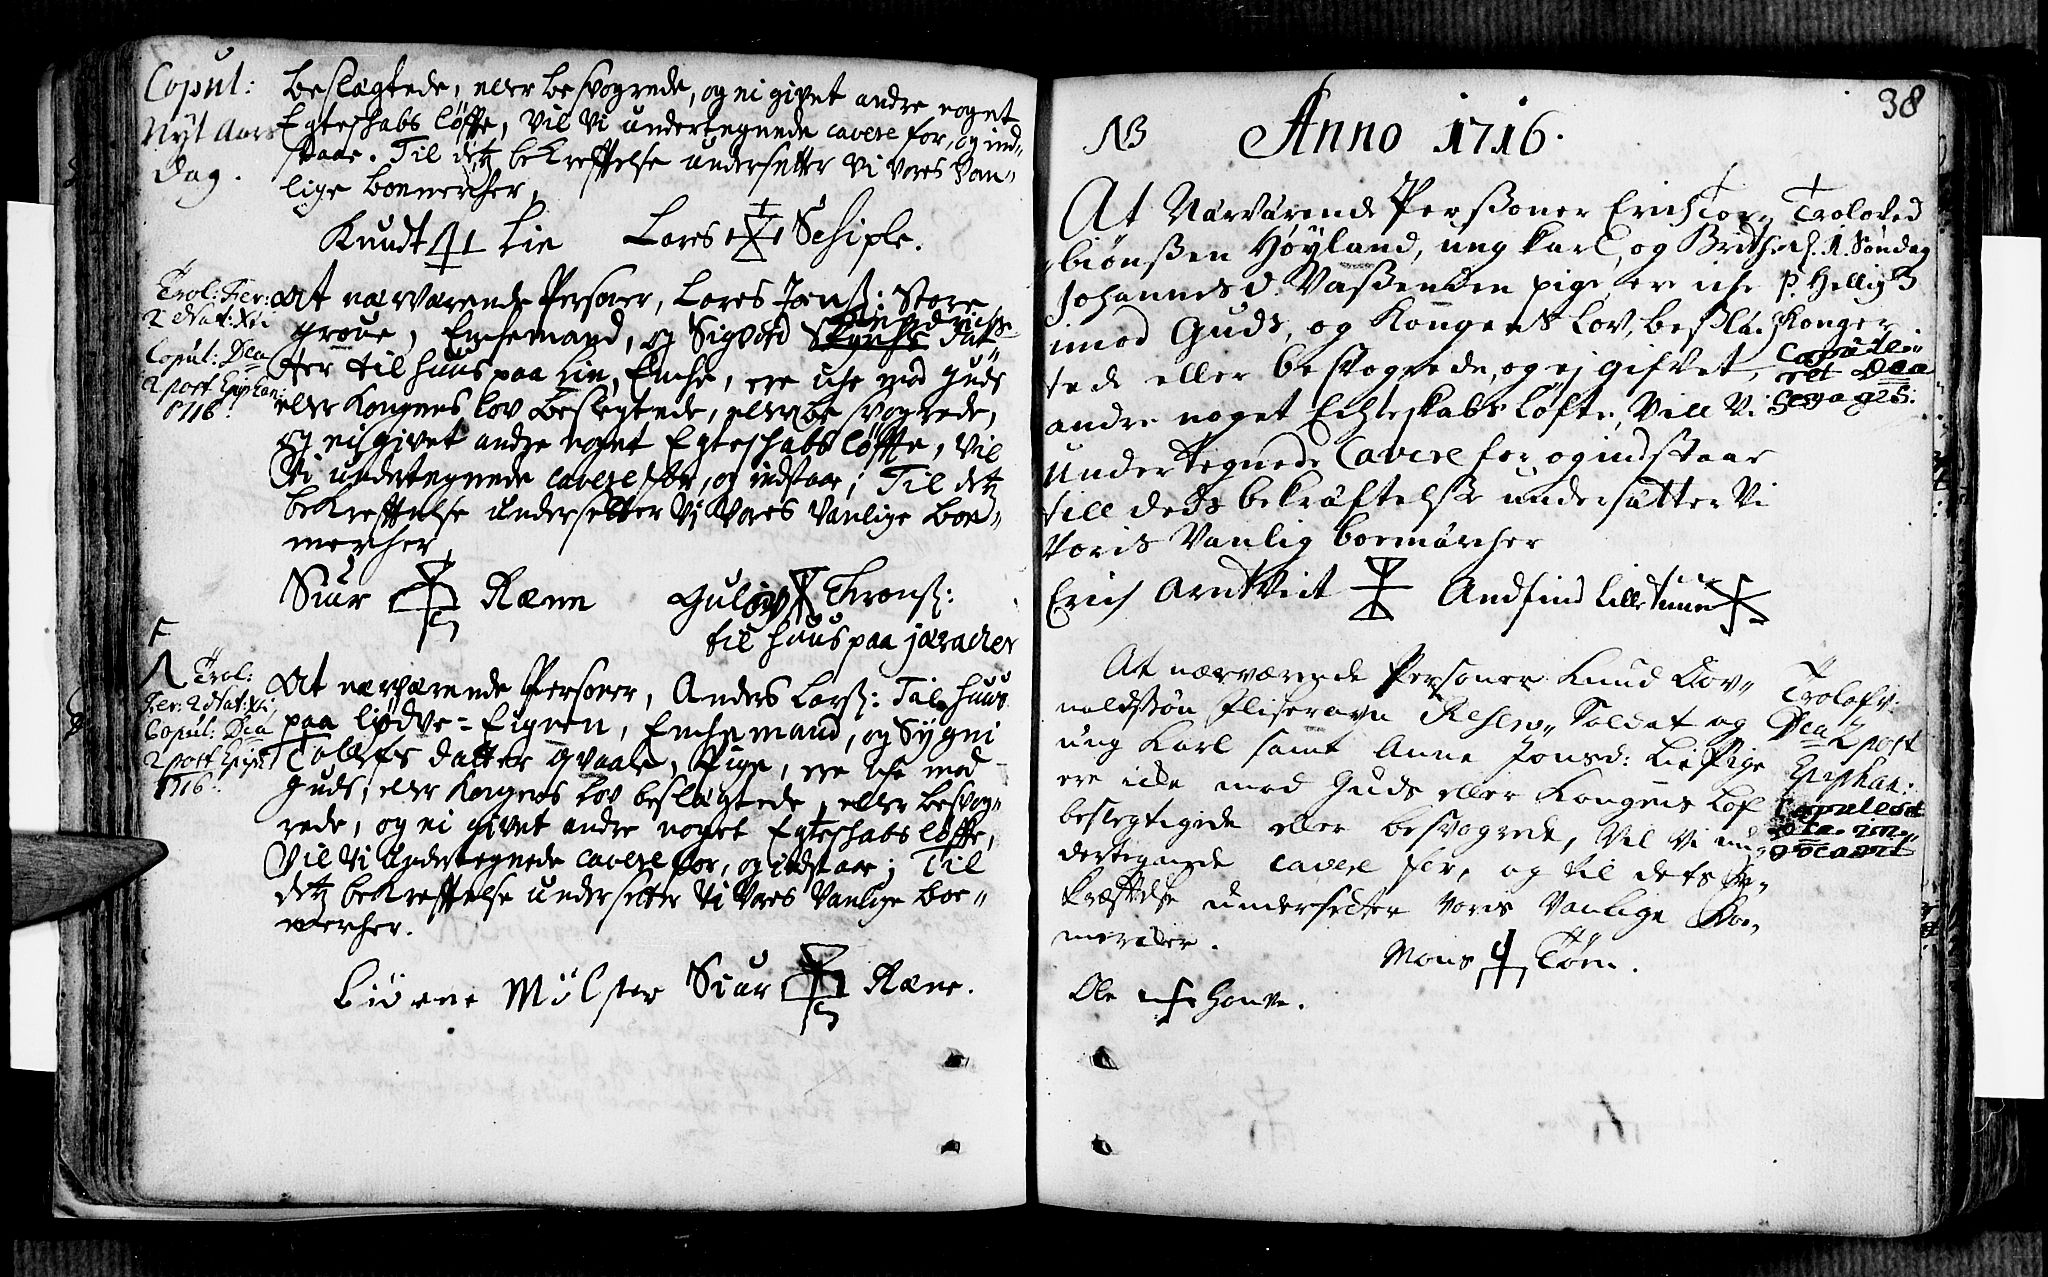 Copul:
Nyt Aars
Dag.
beslægtede, eller besvogrede, og ei givet andre noget
Egteschabs løffte, vil vi undertegnede cavere for, og ind-
staae. Til ditz bekreffftelse undersetter vi vores van-
lige boemercher,
Knudt Lie Lares Schiple.
Trol: Fer:
2 Nat: Xti
Copul: Dca
2 post Epiphan:
1716.
At nærværende Personer, Lares Jons: Store
groue, Enchemand, og Sigvord
ter til huus paa Lie, Enche, ere iche mod Guds
eller Kongens lov beslegtede, eller besvogrede,
og ei givet andre noget Egteschabs løffte, vil
vi undertegnede cavere for, og indstaae; Til ditz
bekreffftelse undersetter vi vores vanlige boe-
mercher,
Siur Ræne Guløv Trons:
til huus paa jæracher
Trol:
Fer: 2 Nat: Xti
Copul: Dca
2 post Epiph:
1716.
At nærværende Personer, Anders Lars: Til huus
paa lydve-Eignen, Enchemand, og Sygni
Tollefs datter gvaale, Pige, ere iche mod
Guds, eller Kongens lov beslægtede, eller besvog-
rede, og ei givet andre noget Egteschabs løffte,
vil vi undertegnede cavere for, og indstaae; Til
ditz bekreffftelse undersetter vi vores vanlige boe-
mercher.
Mølster Siur Ræne.
38
NB Anno 1716.
At Nærværende Perssoner Erich Tor-
biønssen Høyland, ung karl, og Brithe
Johannes d. Vassenden pige, ere iche
imod Guds, og Kongens lov, besslæg-
tede eller besvogrede, og ej gifvet,
andre noget Echteskabs løfte, Vill Vi
Undertegnede Cavere for og indstaar
till deds bekräftelse undersätter Vi
Voris Vanlig boemärcher
Erich Arntveit Andfind Lilletunn
Troloved
d. 1. Søndag
p. Hellig 3
Konger
Copule-
ret Dca
Sexages:
At nærværende Personer Knud
Fliseravn Reserv- Soldat og
ung Karl samt Anne Jonsd: Lie Pige
ere icke mod Guds eller Kongens Lof
beslegtigede eller besvogrede, Vil Vi un-
dertegnede cavere for, og til dets be-
kræftelse undersetter voris vanlige Boe-
mercker.
Mons Tøen.
Ole Honve.
Trolofv:
Dca 2 post
Epiphan:
Copuleret
Dca in-
vocavit